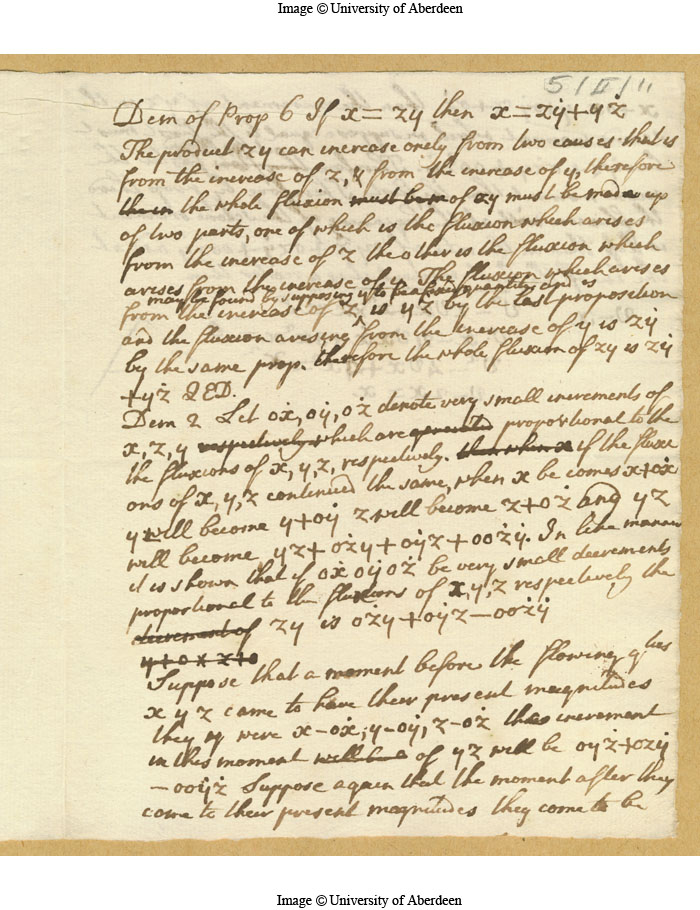 Image © University of Aberdeen
5/II/11
Dem of Prop 6 If x = zy then ẋ = zẏ + yż
The product zy can increase onely from two causes that is
from the increase of z, & from the increase of y, therefore
the in the whole fluxion must be m of zy must be made up
of two parts, one of which is the fluxion which arises
from the increase of z the other is the fluxion which
arises from the increase of y. The fluxion which arises
may be found by supposing y to be a fixed quantity and is
from the increase of z is yż by the last proposition
and the fluxion arising from the increase of y is zẏ
by the same prop. therefore the whole fluxion of zy is zẏ
+ yż QED.
Dem 2 Let oẋ, oẏ, oż denote very small increments of
x, z, y respectively which are generated proportional to the
the fluxions of x, y, z, respectively. then when x if the fluxi
ons of x, y, z continued the same, when x be comes x+oẋ
y will become y+oẏ z will become z+oż and yz
will become yz + oży + oẏz + oożẏ. In like manner
it is shown that if oẋ oẏ oż be very small decrements
proportional to the fluxions of x, y, z respectively the
decrement of zy is oży + oẏz – oożẏ
y+o x x+o
Suppose that a moment before the flowing qties
x y z came to have their present magnitudes
they were x–oẋ, y–oẏ, z–oż the increment
in this moment will be of yz will be oyż+ozẏ
– ooẏż Suppose again that the moment after they
come to their present magnitudes they come to be
Image © University of Aberdeen